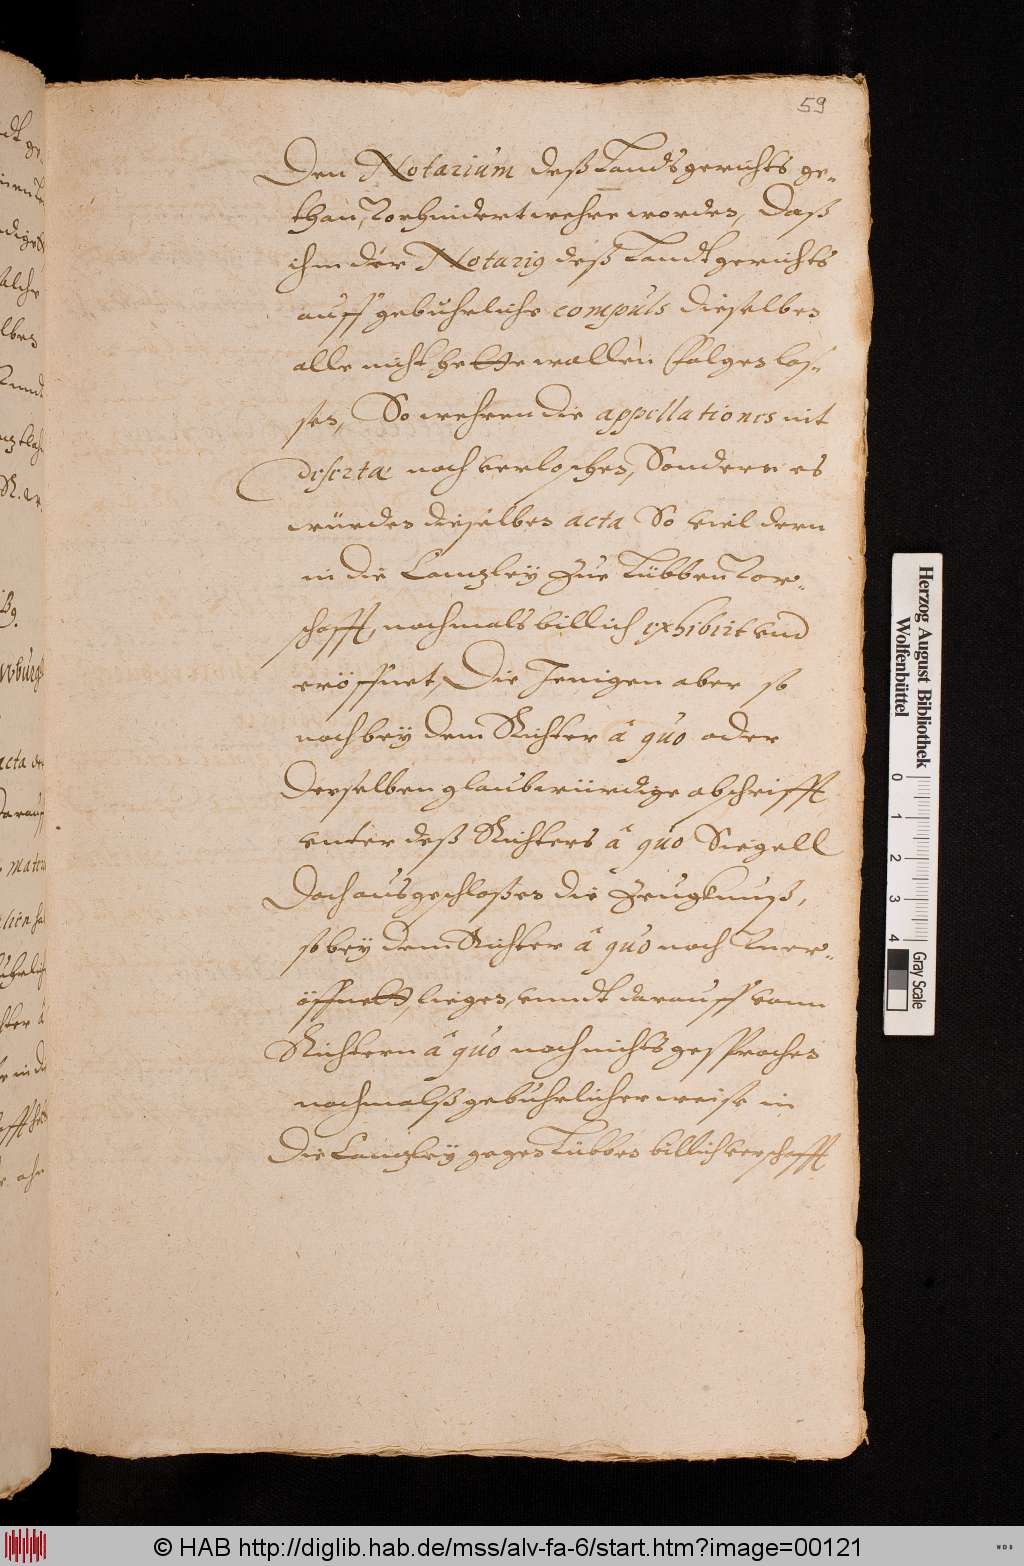 59
Den Notarium deß Landsgerichts ge-
than, Vorhindert wehre worden, Daß
ihm der Notarius deß Landtgerichts
auff gebuhrliche compuls dieselben
alle nicht hette wollen folgen las-
sen, So wehren die appellationes nit
desertæ noch verloschen, Sondern es
würden dieselben acta So viel dern
in die Cantzley Zue Tübben Vor-
schafft, nachmals billich exhibirt vnd
eröffnet, Die Jenigen aber so
noch bey dem Richter â quo oder
Derselben glaubwürdige abschrifft
vnter deß Richters â quo Siegell
Doch ausgeschloßen die Zeugknuß,
so bey dem Richter â quo noch Vner-
öffnett, liegen, vnndt darauff vonn
Richtern â quo noch nichts gesprochen
nachmalß gebuhrlicher weise in
Die Cantzley gegen Tübben billich verschafft
Herzog August Bibliothek
Wolfenbüttel
0 1 2 3 4
Gray Scale
© HAB http://diglib.hab.de/mss/alv-fa-6/start.htm?image=00121